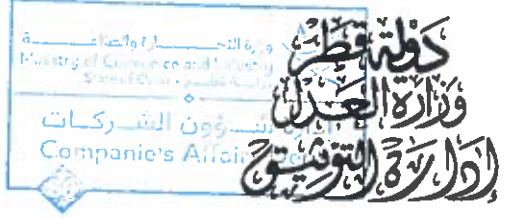 دولة قطر
وزارة العدل
إدارة التوثيق
وزارة التجـــارة والصناعـــة
Ministry of Commerce and Industry
State of Qatar
شـــؤون الشـــركـات
Companie's Affair